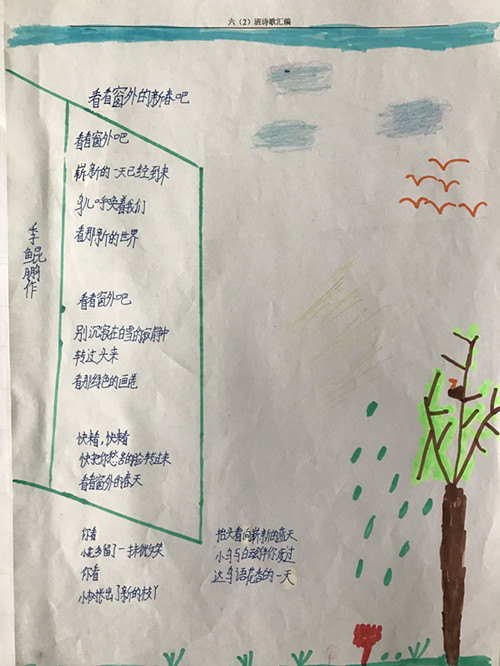 六（2）班诗歌汇编
看看窗外的新春吧
看看窗外吧
崭新的一天已经到来
鸟儿呼唤着我们
看那新的世界
李鲲鹏作
看看窗外吧
别沉寂在白雪的寂静中
转过头来
看那绿色的画卷
快来看，快来看
快把你愁苦的脸转过来
看看窗外的春天
你看
小花乡留了一抹微笑
你看
小树长出了新的枝丫
抬头看向崭新的蓝天
小鸟与白云伴你度过
这鸟语花香的一天